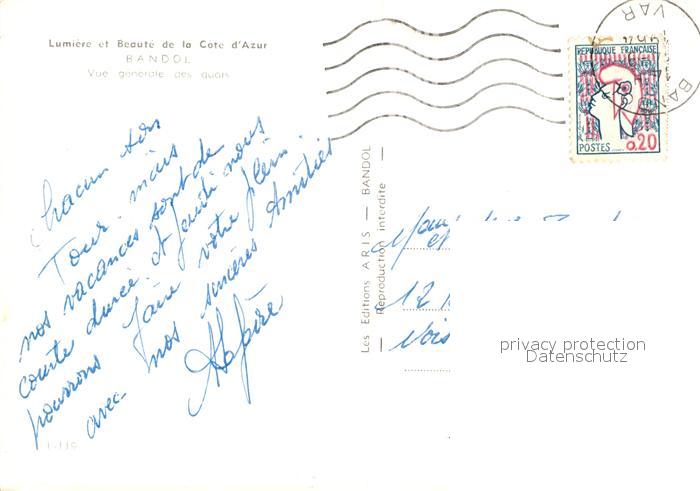 Lumière et Beauté de la Cote d'Azur
BANDOL
Vue générale des quais
Chacun son
Tour. mais
nos vacances sont de
courte durée. et Jeudi nous
pourrons faire votre plein.
avec nos sincères Amitiés
Les Editions ARIS — BANDOL
Reproduction interdite
REPUBLIQUE FRANÇAISE
POSTES 0,20
VAR
12
privacy protection
Datenschutz